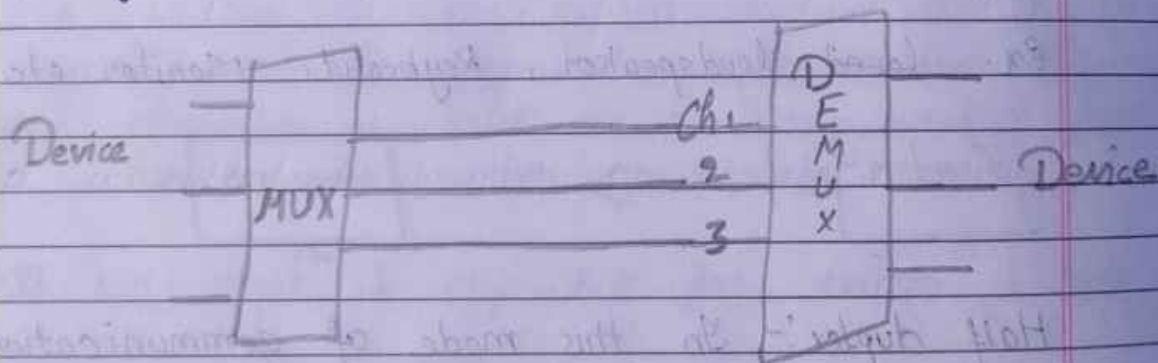 Device
MUX
Ch1
2
3
DEMUX
Device